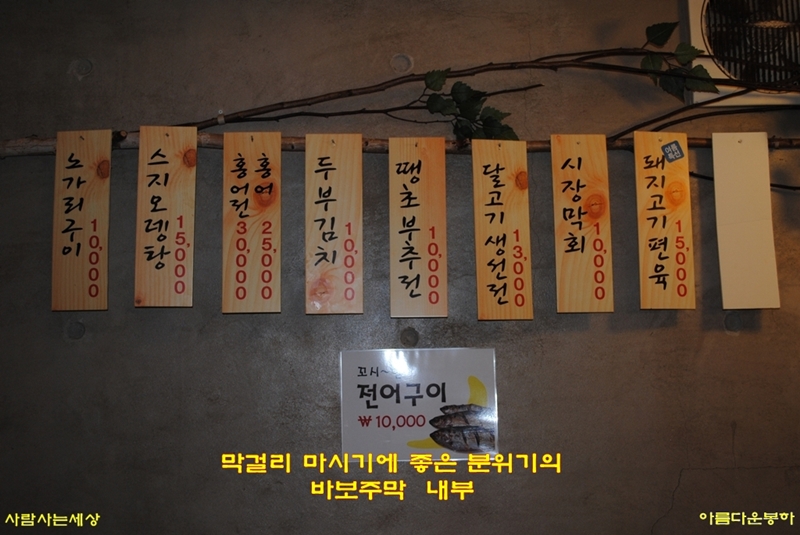 노가리구이 10,000
스지오뎅탕 15,000
홍어 25000
홍어전 30,000
두부김치 10,000
땡초부추전 10,000
달고기생선전 13,000
시장막회 10,000
돼지고기편육 15,000
전어구이
₩10,000
막걸리 마시기에 좋은 분위기의
바보주막 내부
사람사는세상
아름다운봉하